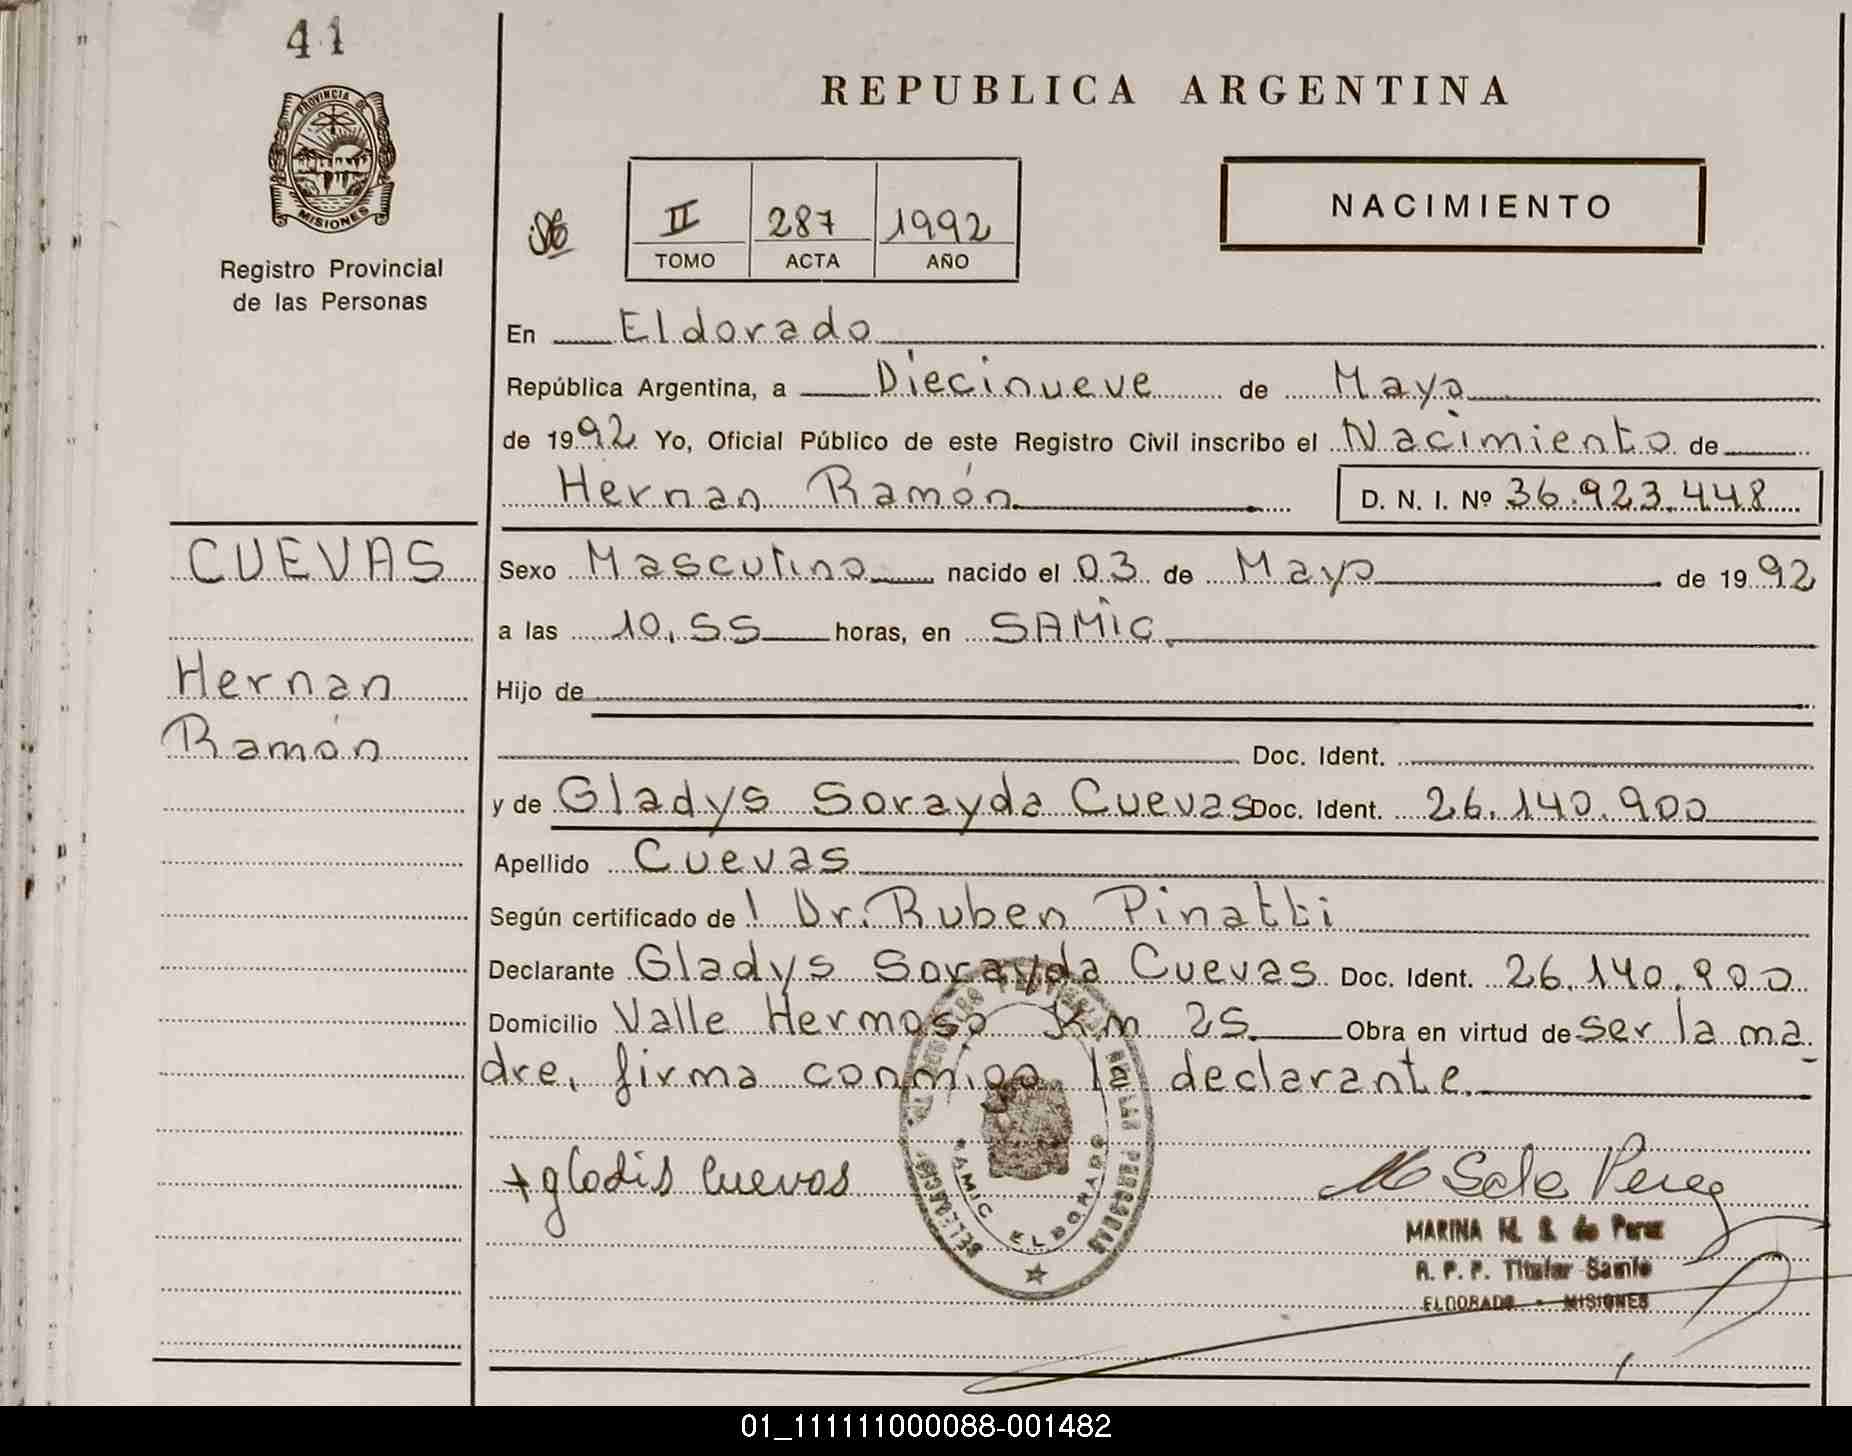 41
PROVINCIA DE
MISIONES
Registro Provincial
de las Personas
REPUBLICA ARGENTINA
II 287 1992
TOMO ACTA AÑO
NACIMIENTO
En Eldorado
República Argentina, a Diecinueve de Mayo
de 1992 Yo, Oficial Público de este Registro Civil inscribo el Nacimiento de
Hernan Ramón D. N. I. Nº 36.923.448
CUEVAS
Hernan
Ramón
Sexo Masculino nacido el 03 de Mayo de 1992
a las 10,55 horas, en SAMIC
Hijo de
Doc. Ident.
y de Gladys Sorayda Cuevas Doc. Ident. 26.140.900
Apellido Cuevas
Según certificado de ! Dr. Ruben Pinatti
Declarante Gladys Sorayda Cuevas Doc. Ident. 26.140.900
Domicilio Valle Hermoso Km 25 Obra en virtud de ser la ma-
dre, firma conmigo la declarante.
+ gladis Cuevas
DELEGACION DE LAS PERSONAS
SAMIC ELDORADO
MARINA M. S. de Perez
R. P. P. Titular Samic
ELDORADO - MISIONES
01_111111000088-001482